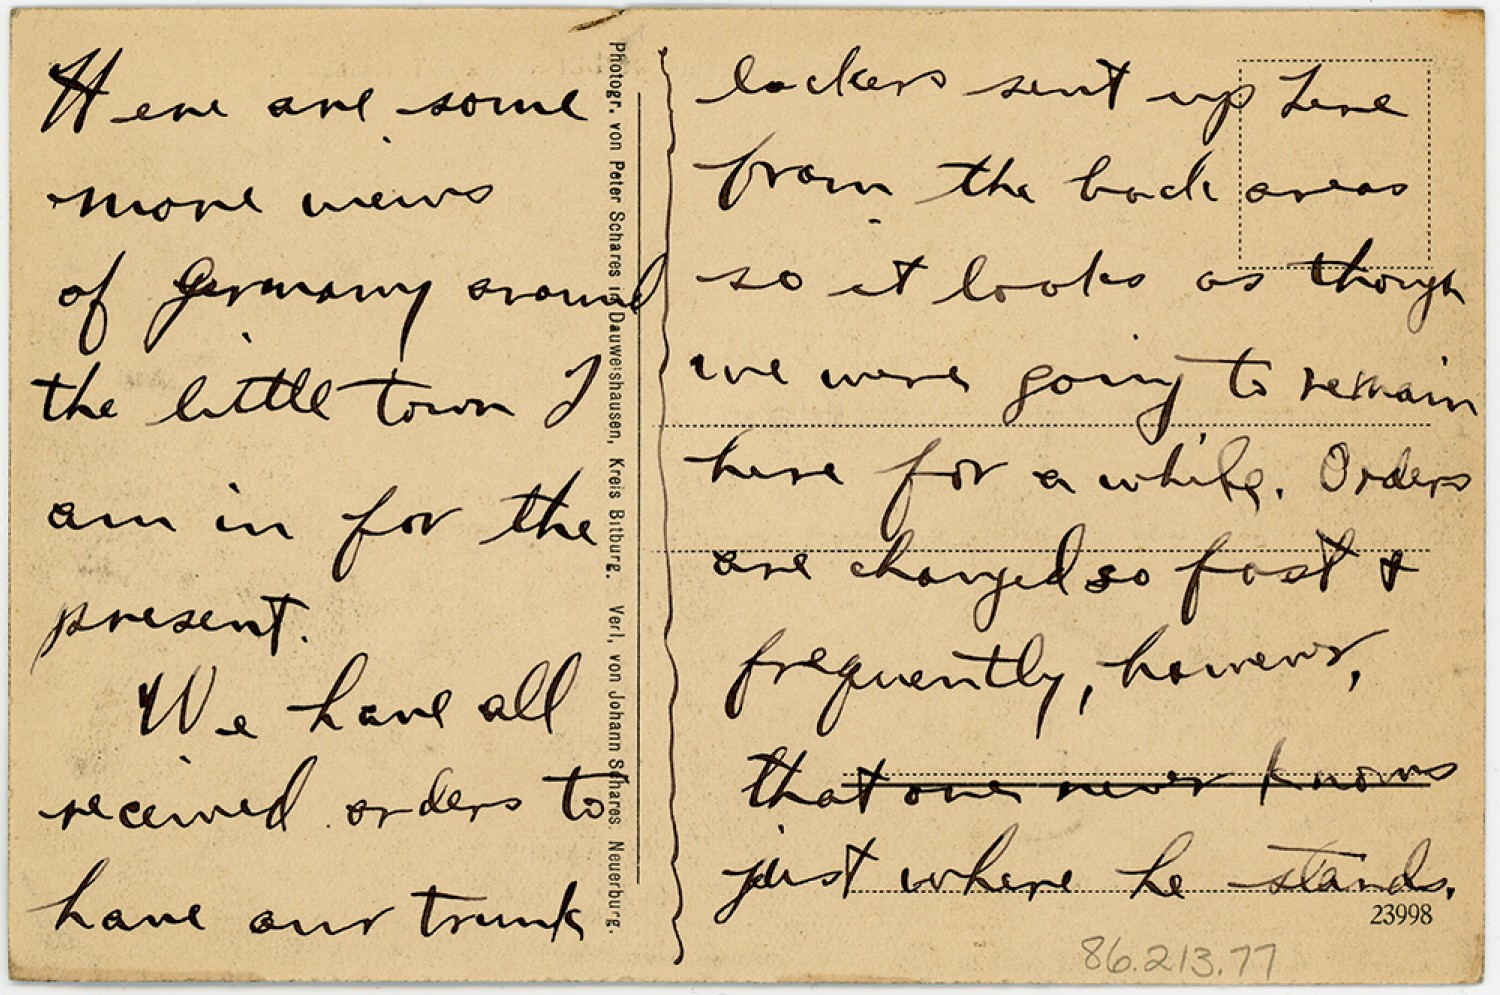 Here are some
more views
of Germany around
the little town I
am in for the
present.
We have all
received orders to
have our trunk
Photogr. von Peter Schares in Dauwelshausen, Kreis Bitburg. Verl. von Johann Schares. Neuerburg.
lockers sent up here
from the back areas
so it looks as though
we were going to remain
here for a while. Orders
are changed so fast &
frequently, however,
that one never knows
just where he stands.
23998
86.213.77